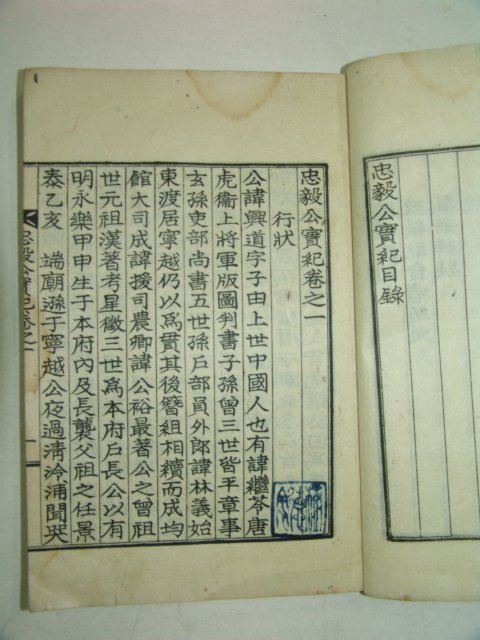 忠毅公實紀目錄
忠毅公實紀卷之一
行狀
公諱興道字子由上世中國人也有諱繼苓唐
虎衞上將軍版圖判書子孫曾三世皆平章事
玄孫吏部尚書五世孫戶部員外郎諱林義始
東渡居寧越仍以爲貫其後簪組相續而成均
館大司成諱援司農卿諱公裕最著公之曾祖
世元祖漢著考星徵三世爲本府戶長公以有
明永樂甲申生于本府內及長襲父祖之任景
泰乙亥　端廟遜于寧越公夜過淸泠浦聞哭
忠毅公實紀卷之一
一